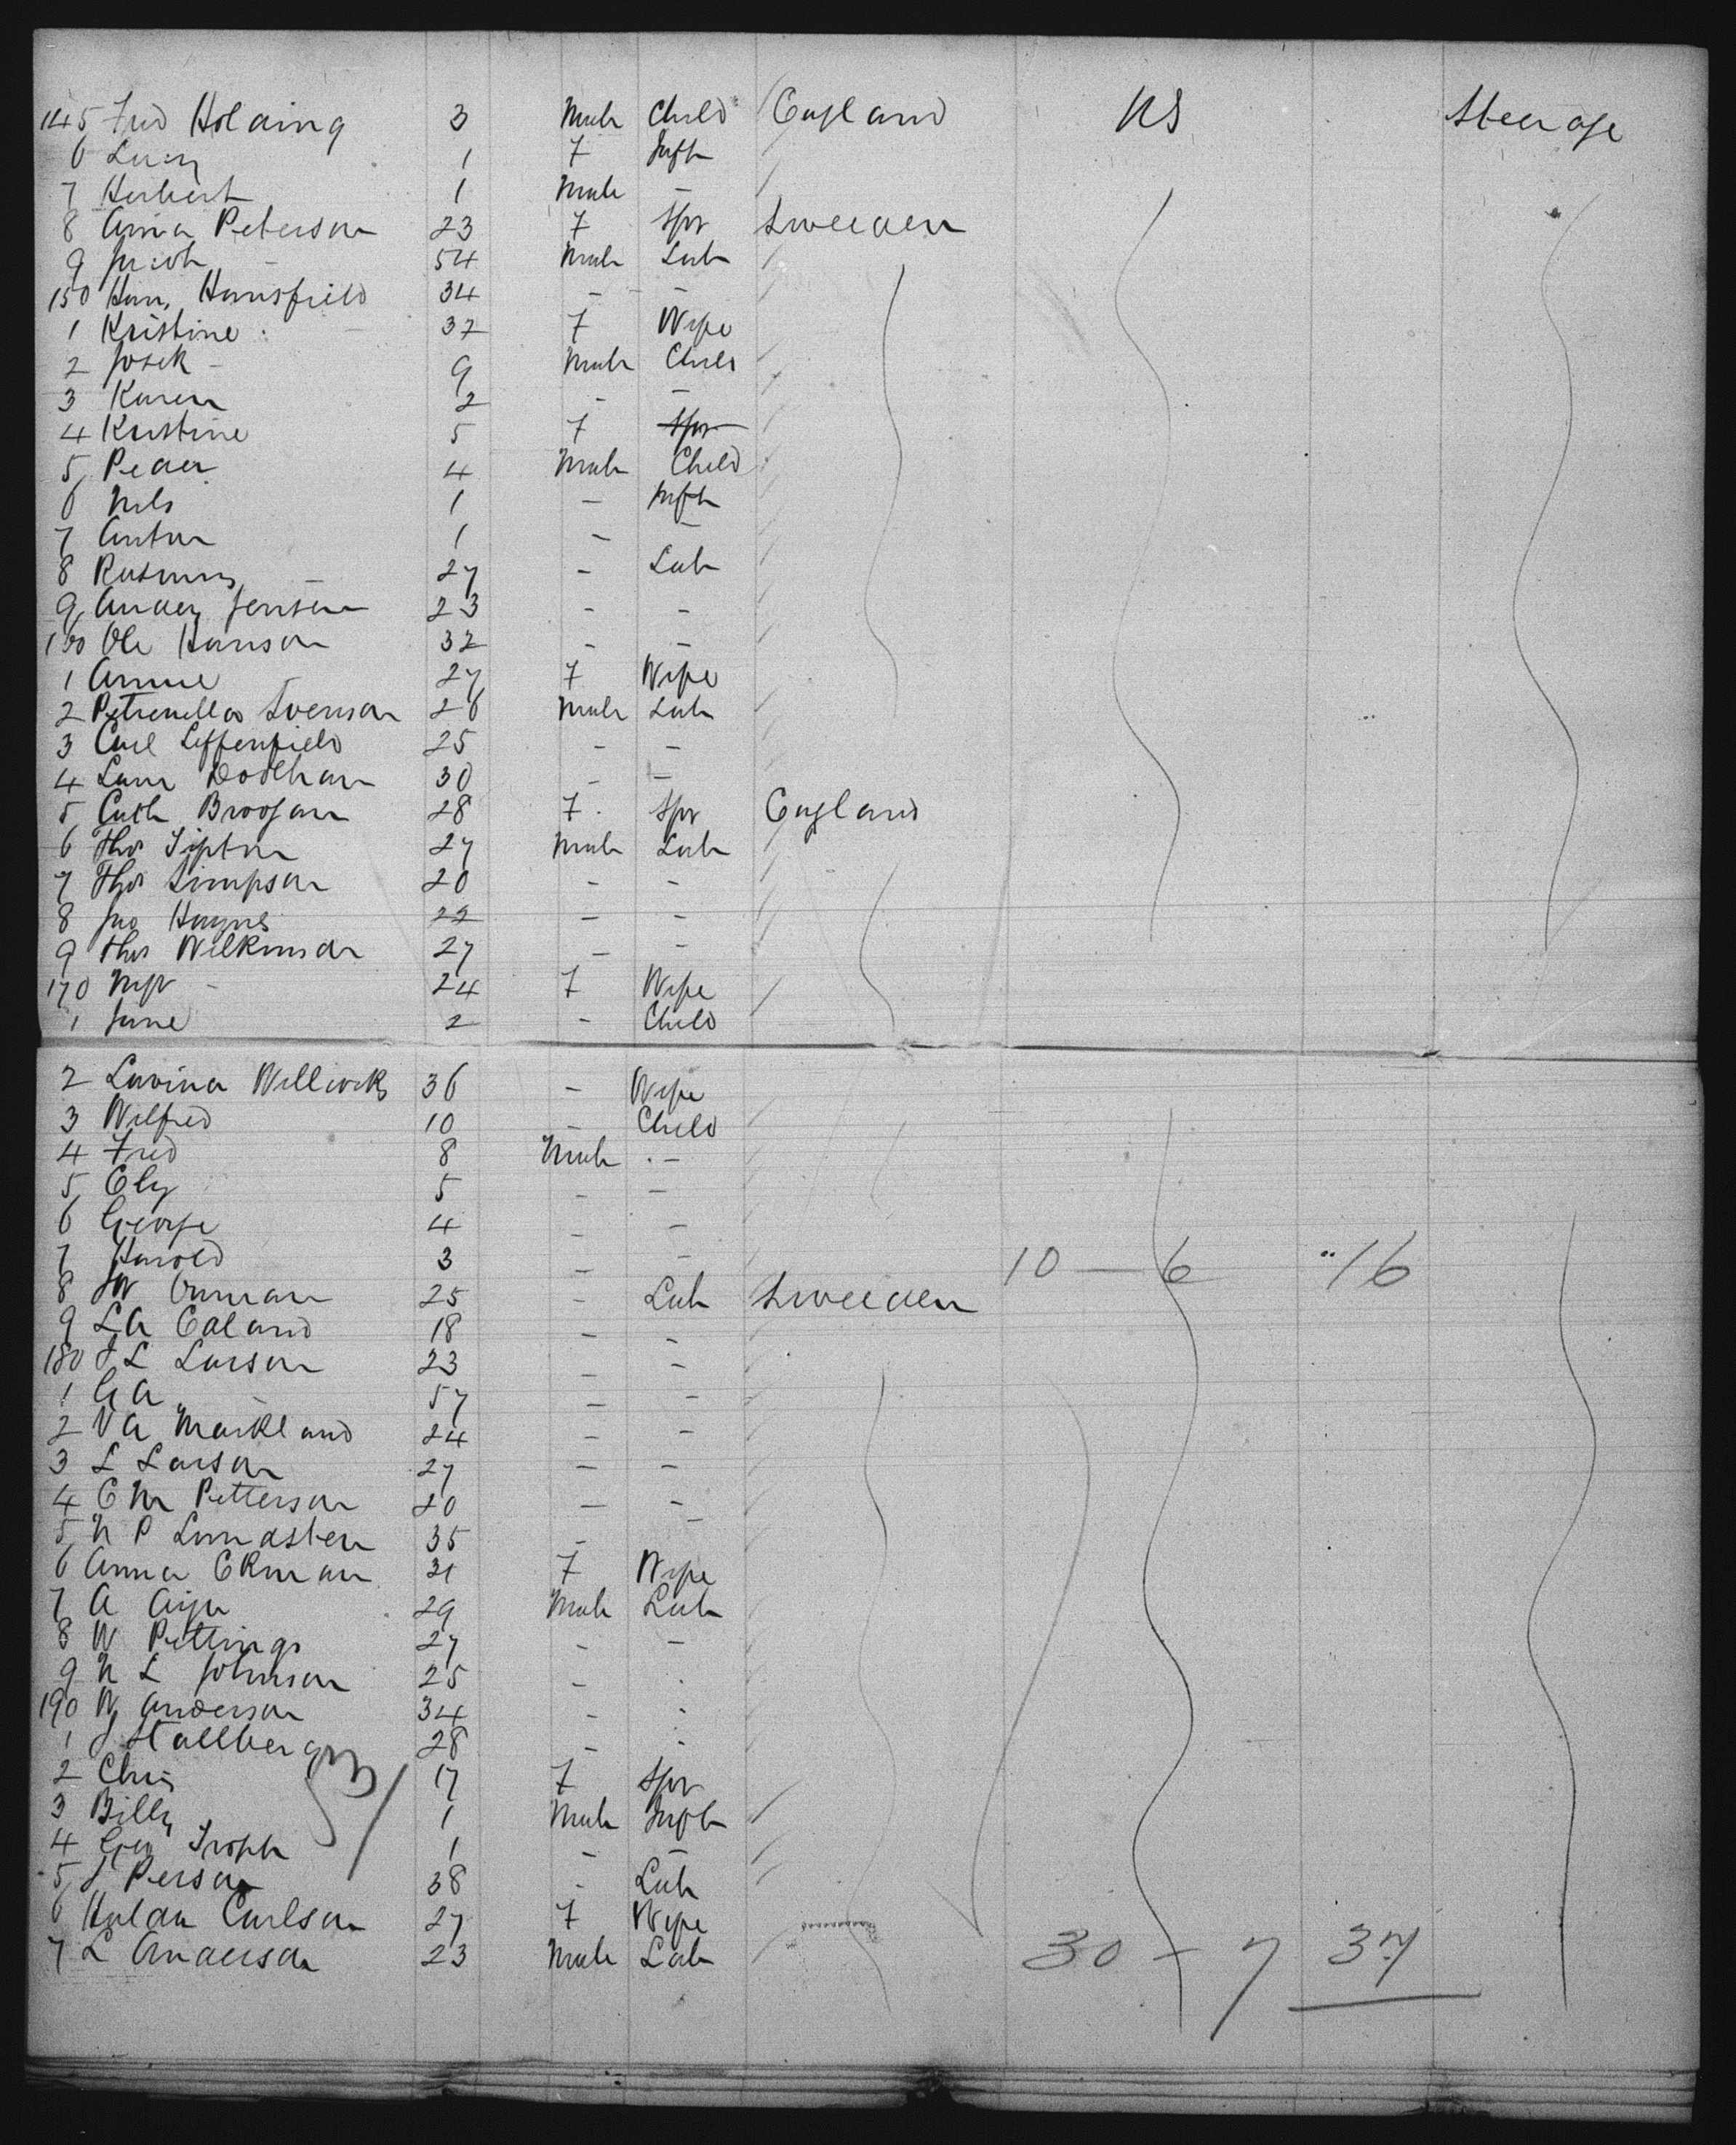 145 Fred Holding 3 Male Child England US Steerage
6 Lucy 1 F Inft
7 Herbert 1 Male -
8 Anna Peterson 23 F Spr Sweeden
9 Jacob - 54 Male Lab
150 Han, Hansfield 34 - - -
1 Kristine - 32 F Wife
2 Josek - 9 Male Child
3 Karen 2 - -
4 Kristine 5 F Spr
5 Peder 4 Male Child
6 Nels 1 - Inft
7 Anton 1 - -
8 Rasmus - 27 - Lab
9 Anders Jensen 23 - -
160 Ole Hanson 32 - -
1 Annie 27 F Wife
2 Petronella Svenson 26 Male Lab
3 Carl Leffenfield 25 - -
4 30 - -
5 Cath Broogan 28 F Spr England
6 Thos Tipton 27 Male Lab
7 Thos Simpson 20 - -
8 Jno Haynes 22 - -
9 Thos Wilkinson 27 - -
170 Mrs - 24 F Wife
1 Jane 2 - Child
2 Lavina Willcocks 36 - Wife
3 Wilfred 10 - Child
4 Fred 8 Male -
5 Ely 5 - -
6 George 4 - -
7 Harold 3 - - 10 - 6 "16
8 25 - Lab Sweeden
9 L A Ealand 18 - -
180 J L Larson 23 - -
1 G A - 57 - -
2 V A Markland 24 - -
3 L Larson 27 - -
4 C M Petterson 20 - -
5 N P Lundsten 35 - -
6 Anna Ekman 31 F Wife
7 A 29 Male Lab
8 W 27 - -
9 N L Johnson 25 -
190 W Anderson 34 -
1 J Stallberg 28 -
2 Chris 17 F Spr
3 Billy 1 Male Inft
4 Geo 1 - -
5 J Person 38 - Lab
6 Hulda Carlson 27 F Wife
7 L Anderson 23 Male Lab 30 - 7 37